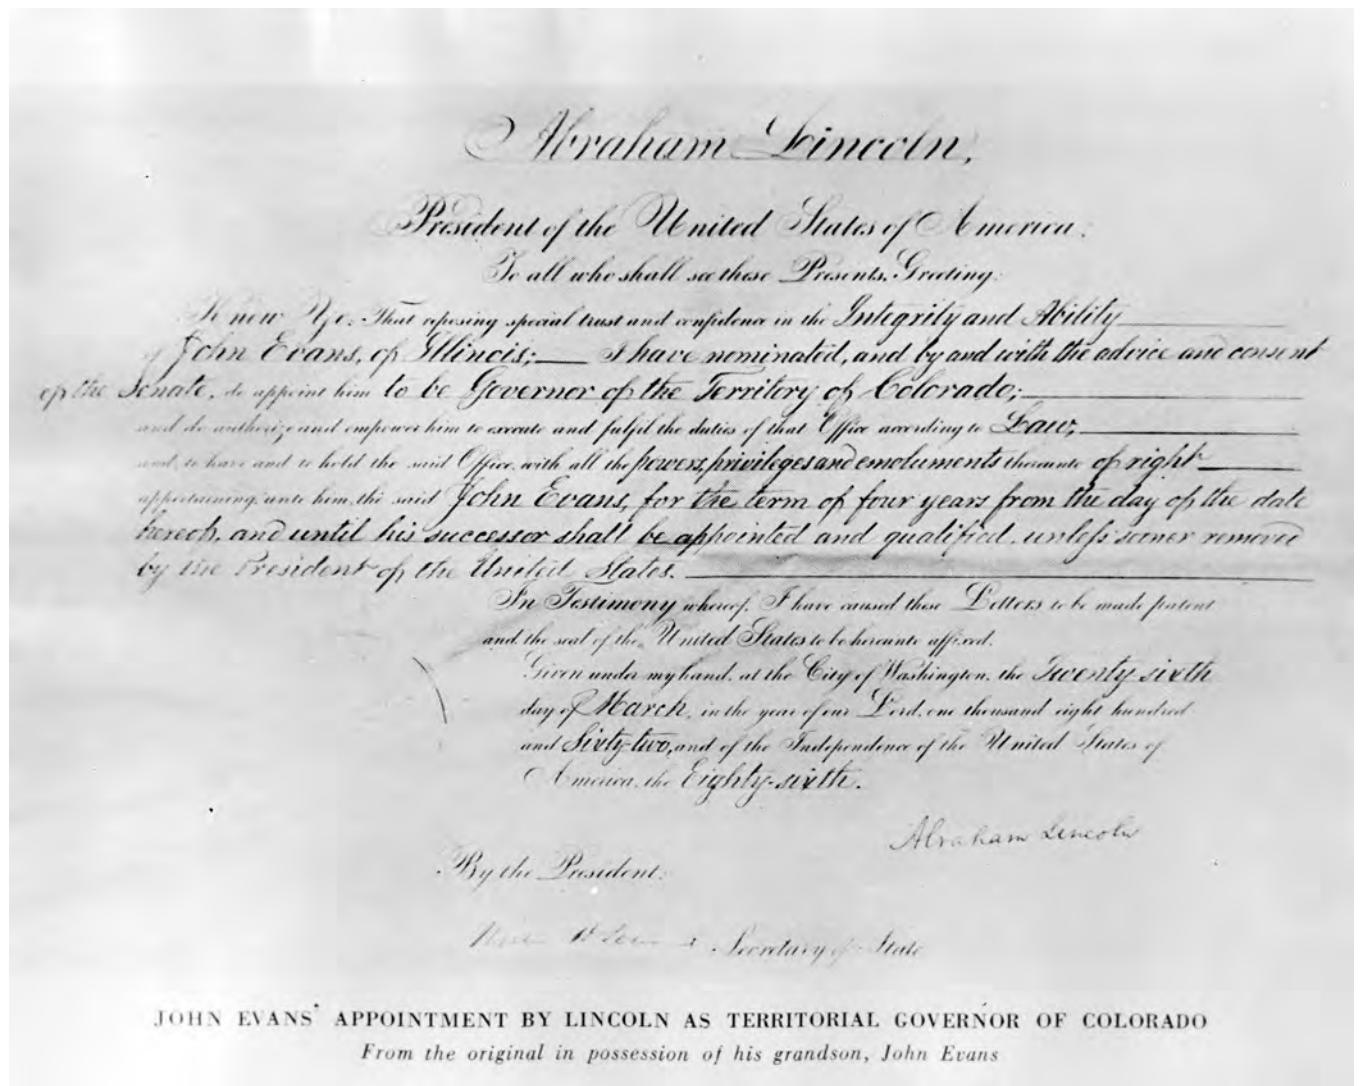 Abraham Lincoln,
President of the United States of America.
To all who shall see these Presents, Greeting:
Know Ye, That reposing special trust and confidence in the Integrity and Ability
of John Evans, of Illinois; I have nominated, and by and with the advice and consent
of the Senate, do appoint him to be Governor of the Territory of Colorado;
and do authorize and empower him to execute and fulfil the duties of that Office according to Law;
and to have and to hold the said Office, with all the powers, privileges and emoluments thereunto of right
appertaining, unto him, the said John Evans, for the term of four years from the day of the date
hereof, and until his successor shall be appointed and qualified, unless sooner removed
by the President of the United States.
In Testimony whereof, I have caused these Letters to be made patent
and the seal of the United States to be hereunto affixed.
Given under my hand, at the City of Washington, the Twenty-sixth
day of March, in the year of our Lord, one thousand eight hundred
and Sixty-two, and of the Independence of the United States of
America, the Eighty-sixth.
Abraham Lincoln
By the President:
Secretary of State
JOHN EVANS' APPOINTMENT BY LINCOLN AS TERRITORIAL GOVERNOR OF COLORADO
From the original in possession of his grandson, John Evans